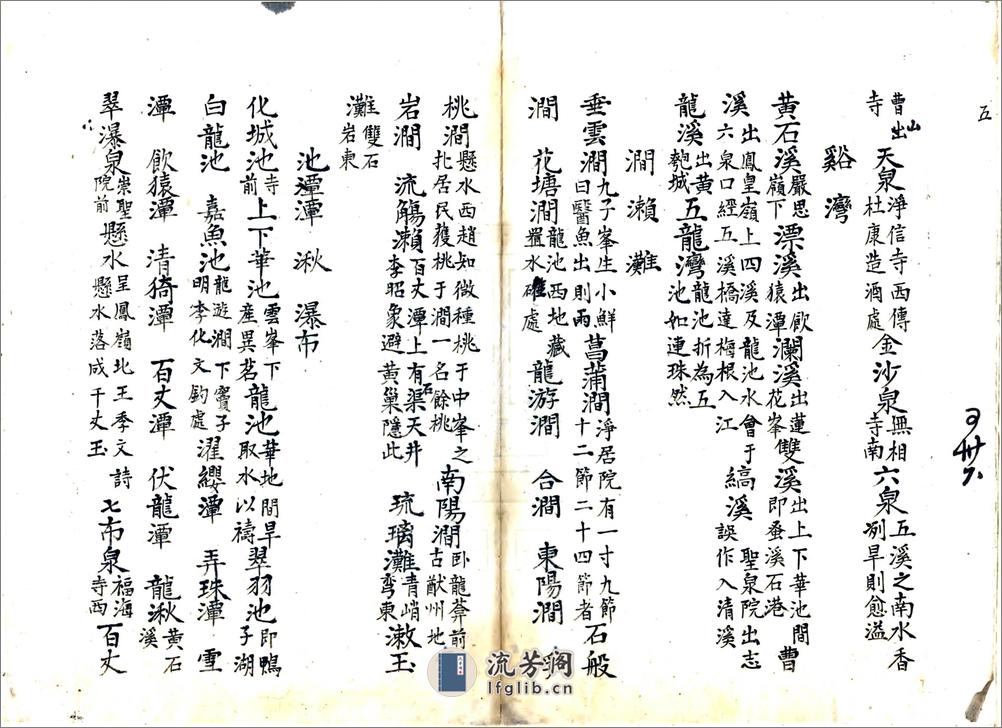 五
曹山出寺 天泉 淨信寺西傳杜康造酒處 金沙泉 無相寺南 六泉 五溪之南水香冽旱則愈溢
谿灣
黃石溪 嚴思嶺下 漂溪 出飲猿潭 瀾溪 出蓮花峯 雙溪 出上下華池間即蚕溪石港 曹
溪 出鳳皇嶺上四溪及龍池水會于六泉口經五溪橋達梅根入江 縞溪 聖泉院出志誤作入清溪
龍溪 出黃匏城 五龍灣 龍池折為五池如連珠然
澗瀨灘
垂雲澗 九子峯生小鮮曰醫魚出則雨 菖蒲澗 淨居院有一寸九節十二節二十四節者 石般
澗 花塘澗 龍池西地藏置水碓處 龍游澗 合澗 東陽澗
桃澗 懸水西趙知微種桃于中峯之北居民獲桃于澗一名餘桃 南陽澗 卧龍莾前古猷州地
岩澗 流觴瀨 百丈潭上有石渠天井李昭象避黃巢隱此 琉璃灘 青峭彎東 漱玉
灘 雙石岩東
池潭潭湫瀑布
化城池 寺前 上下華池 雲峯下產異茗 龍池 華地間旱取水以禱 翠羽池 即鴨子湖
白龍池 嘉魚池 龍遊澗下竇子明李化文釣處 濯纓潭 弄珠潭 雪
潭 飲猿潭 清猗潭 百丈潭 伏龍潭 龍湫 黃石溪
翠瀑泉 崇聖院前 懸水 呈鳳嶺北王季文詩懸水落成千丈玉 七布泉 福海寺西 百丈
流芳閣
lfglib.cn